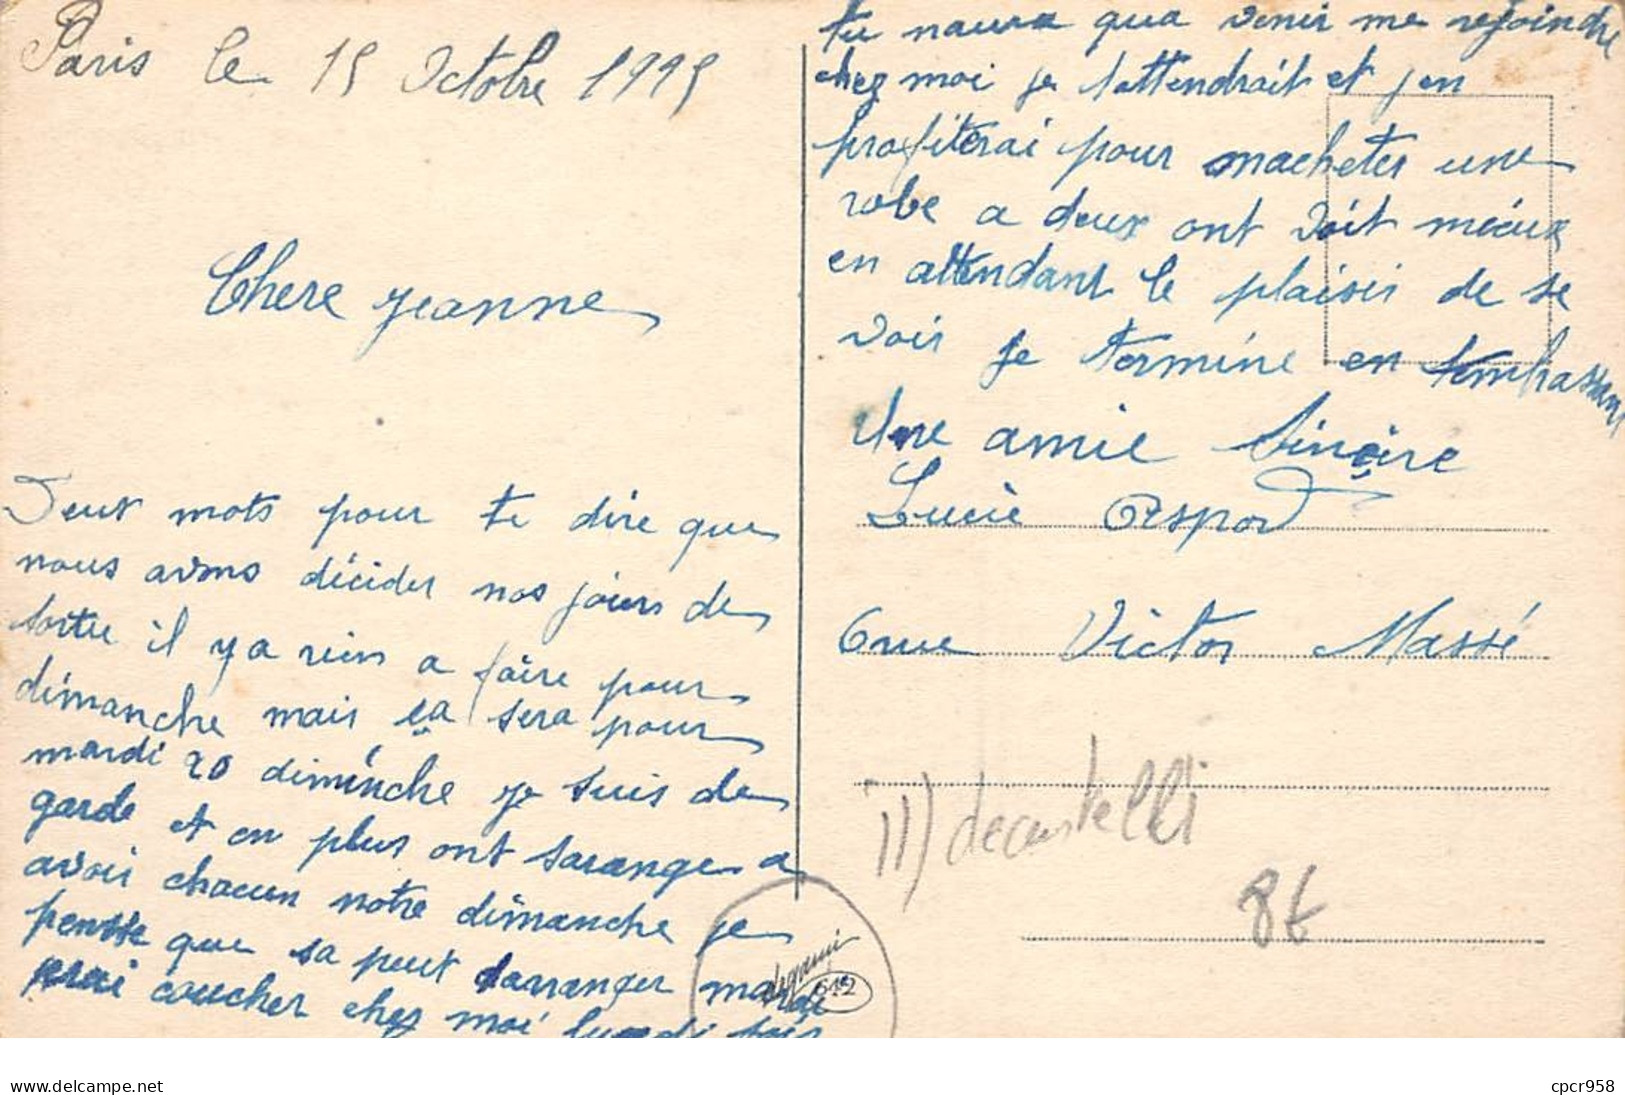 Paris le 15 Octobre 1995
Chere jeanne
Deux mots pour te dire que
nous avons décider nos jours de
sortie il y a rien a faire pour
dimanche mais ça sera pour
mardi 20 diminche je suis de
garde et en plus ont sarange a
avoir chacun notre dimanche je
pensse que sa peut sarranger mardi
jirai coucher chez moi lundi soir
tu naura qua venir me rejoindre
chez moi je tattendrait et jen
profiterai pour machetes une
robe a deux ont voit mieux
en attendant le plaisir de se
voir je termine en tembrassant
Une amie sincère
Lucie
6 rue Victor Massé
111) decastelli
8€
612
https://www.delcampe.net
cpcr958